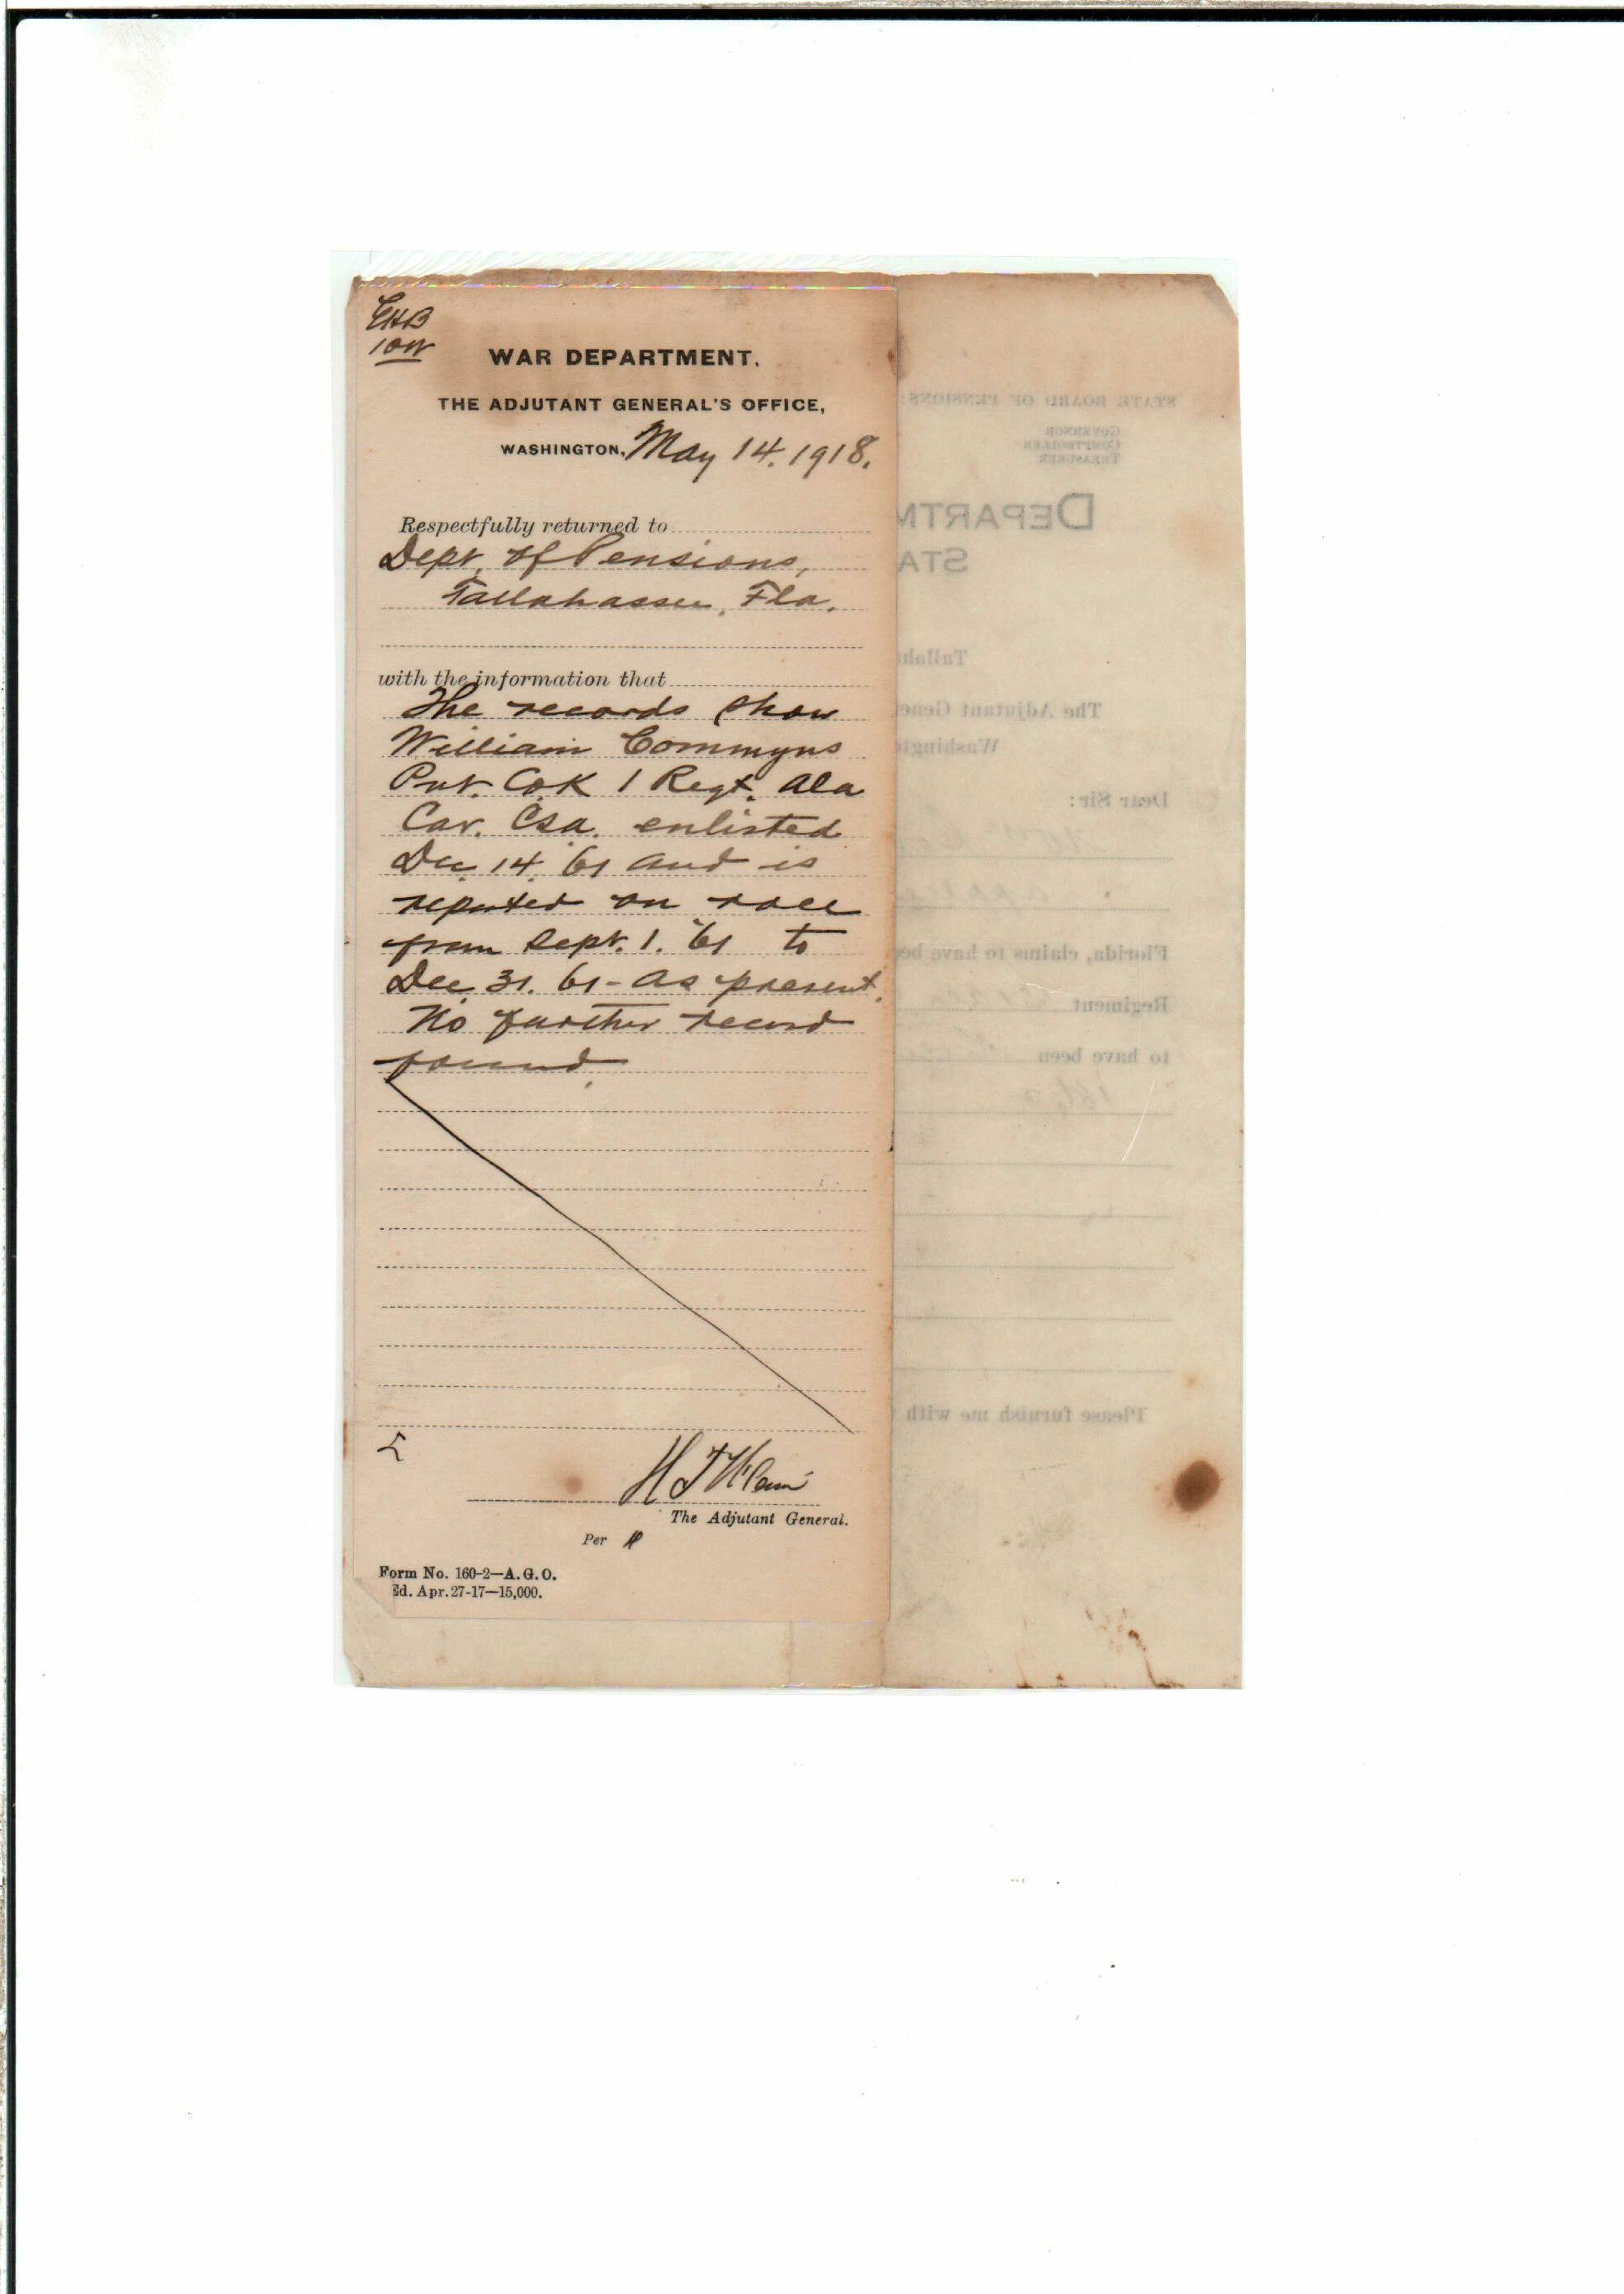 EHB
WAR DEPARTMENT.
THE ADJUTANT GENERAL'S OFFICE,
WASHINGTON, May 14. 1918.
Respectfully returned to
Dept. of Pensions,
Tallahassee, Fla.
with the information that
The records show
William Commyns
Pvt. Co. K 1 Regt. Ala
Cav. Csa. enlisted
Dec 14 61 and is
reported on roll
from Sept. 1. '61 to
Dec 31. 61 - as present.
No further record
found.
The Adjutant General.
Per
Form No. 160-2—A.G.O.
Ed. Apr. 27-17—15,000.
STATE BOARD OF PENSIONS:
GOVERNOR
COMPTROLLER
TREASURER
DEPARTM
STA
Tallah
The Adjutant Gene
Washingt
Dear Sir:
Florida, claims to have be
Regiment
to have been
186
Please furnish me with